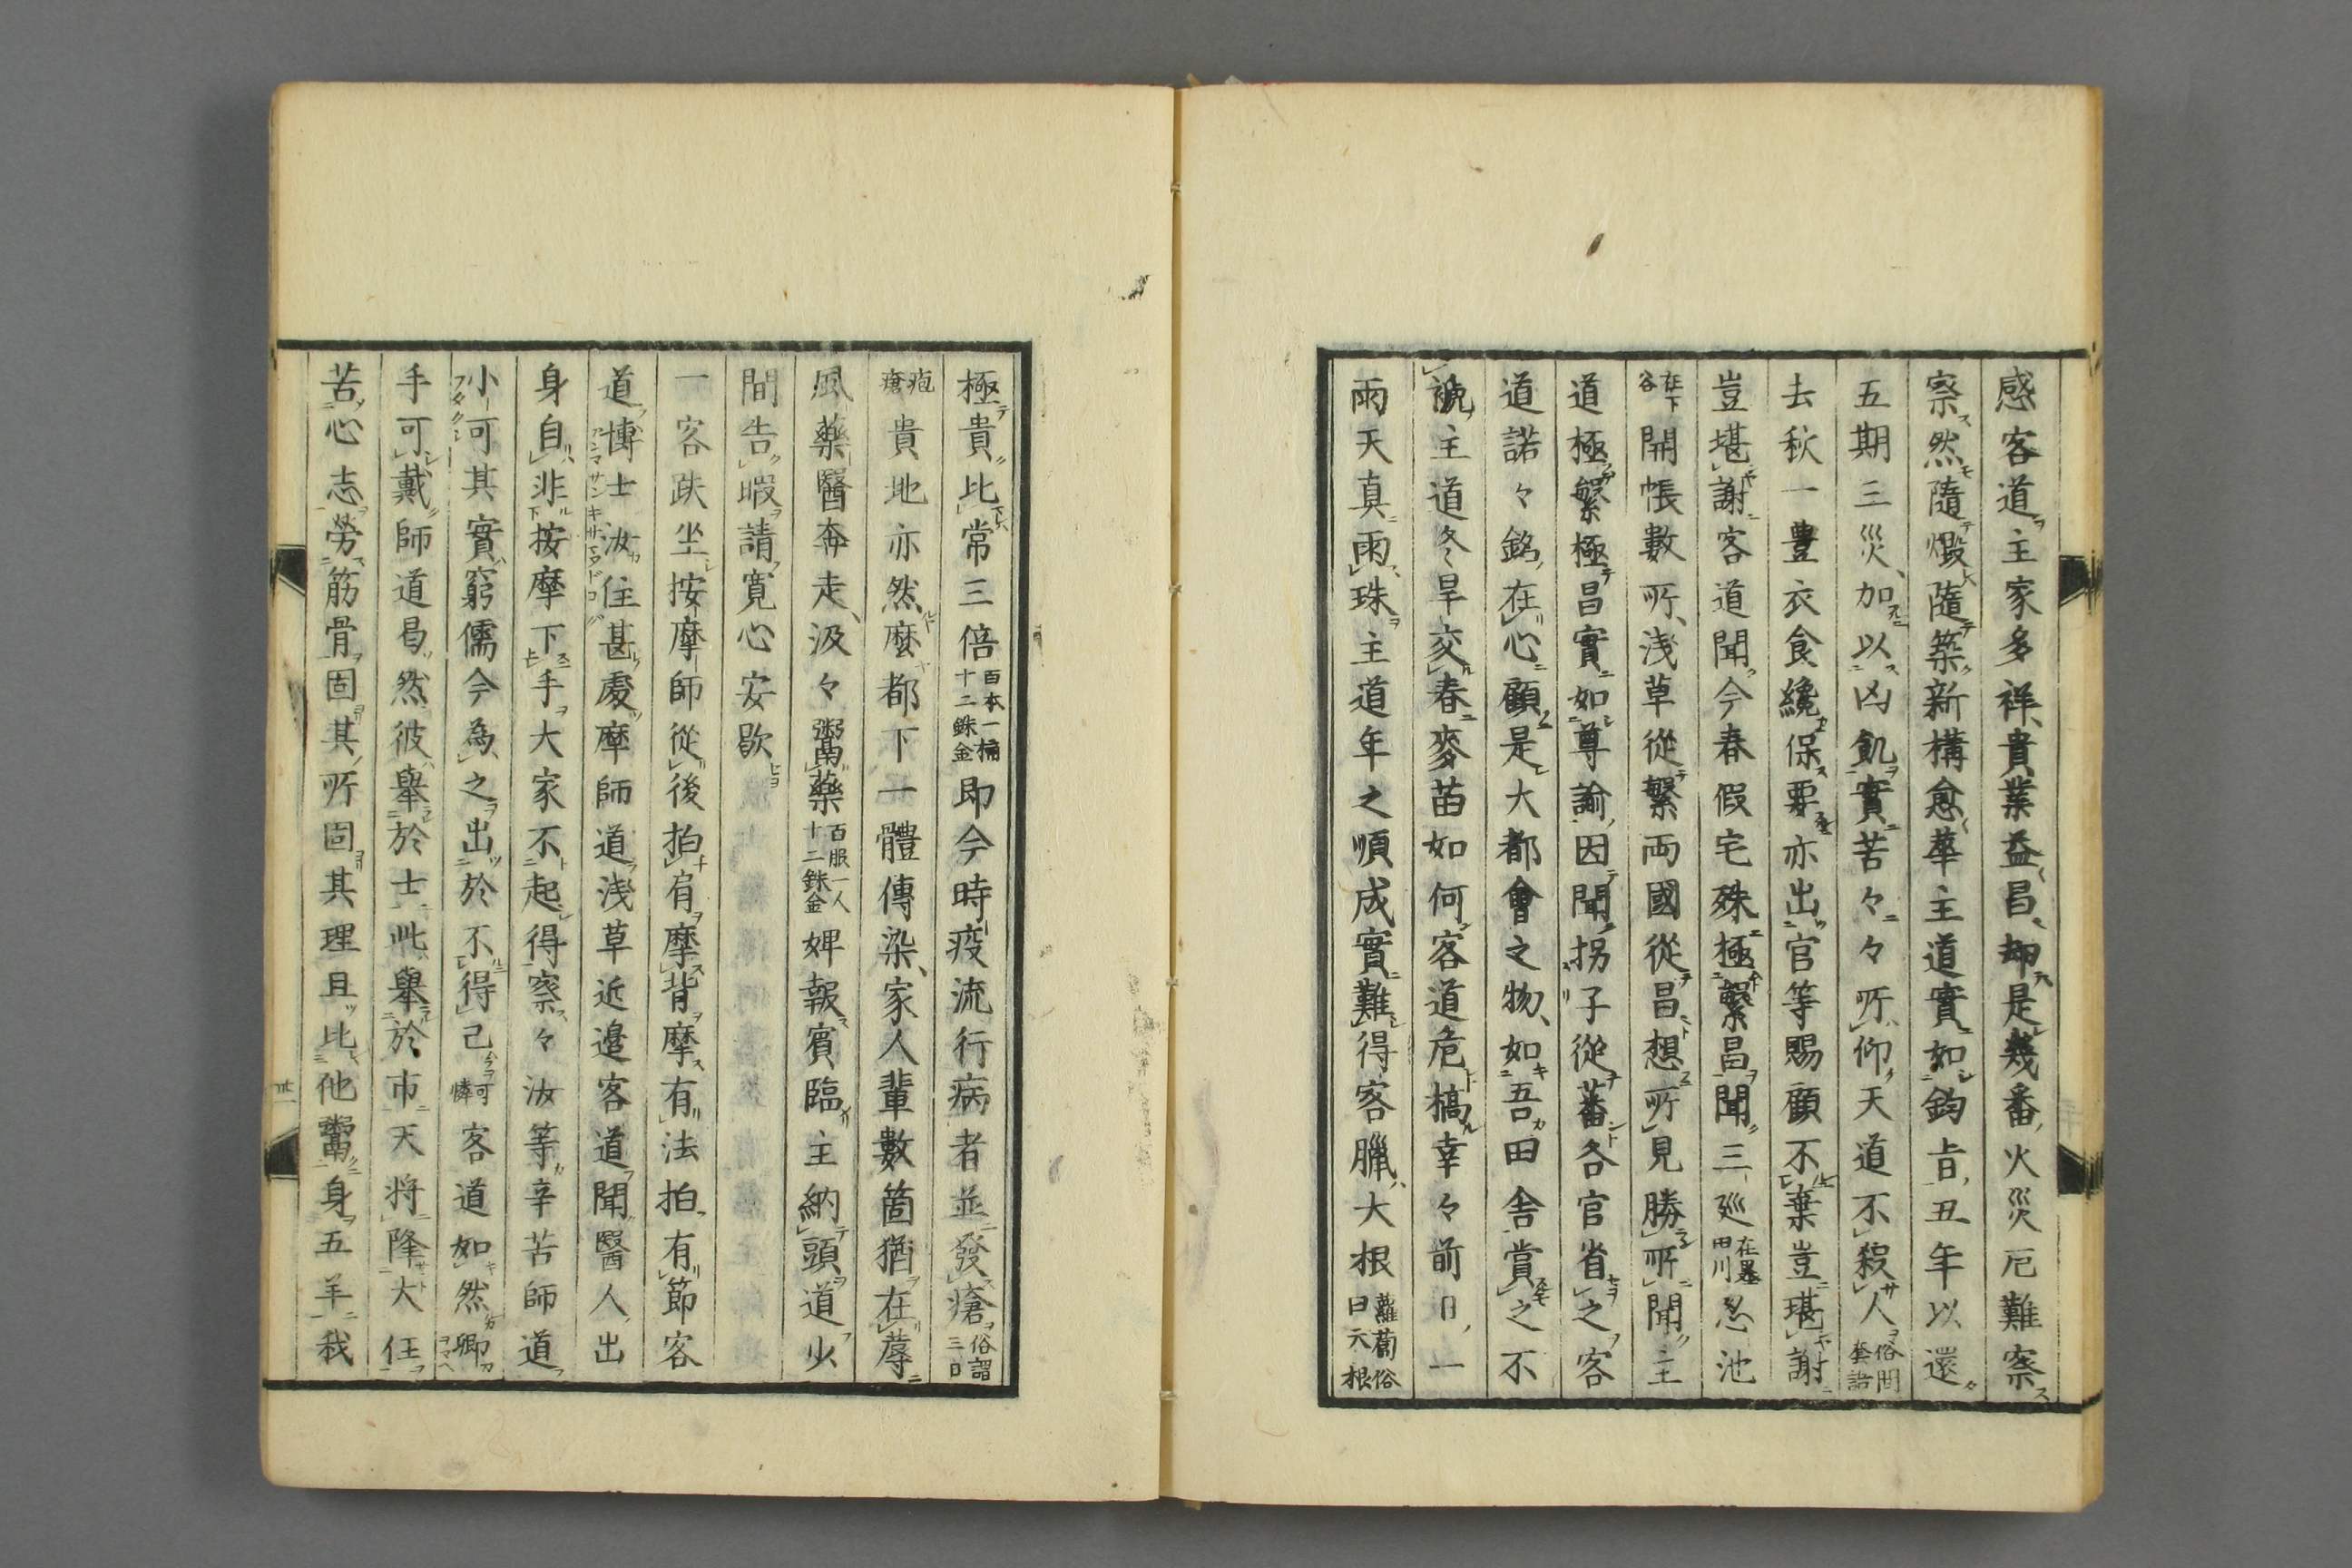 感客道主家多祥貴業益昌却是幾番火災厄難察
察然隨燬隨築新構愈華主道實如鈞旨丑年以還
五期三災加以凶飢實苦々々所仰天道不殺人俗間套語
去秋一豊衣食纔保要亦出官等賜顧不棄豈堪謝
豈堪謝客道聞今春假宅殊極繁昌聞三廵在墨田川忍池
在下谷開帳數所淺草從繁両國從昌想所見勝所聞主
道極繁極昌實如尊諭因聞拐子從蕃各官省之客
道諾々銘在心顧是大都會之物如吾田舎賞之不
號主道冬旱交春麥苗如何客道危槁幸々前日一
雨天真雨珠主道年之順成實難得客臘大根蘿蔔俗曰大根
極貴比常三倍百本一桶十二銖金即今時疫流行病者並發瘡俗謂三日
疱瘡貴地亦然麼都下一體傳染家人輩數箇猶在蓐
風藥醫奔走汲々鬻藥百服一人十二銖金婢報賓臨主納頭道少
間告暇請寛心安歇
一客趺坐按摩師從後拍肩摩背摩有法拍有節客
道博士汝住甚處摩師道淺草近邉客道聞醫人出
身自非按摩下下手大家不起得察々汝等辛苦師道
小可其實窮儒今為之出於不得已可憐客道如然卿
手可戴師道曷然彼舉於士此舉於市天将降大任
苦心志勞筋骨固其所固其理且比他鬻身五羊我